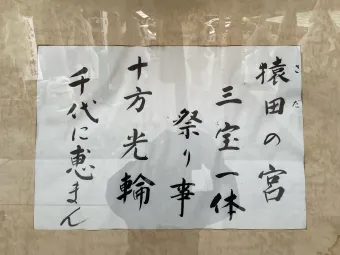 猿田の宮
三宝一体
祭り事
十方光輪
千代に恵まん